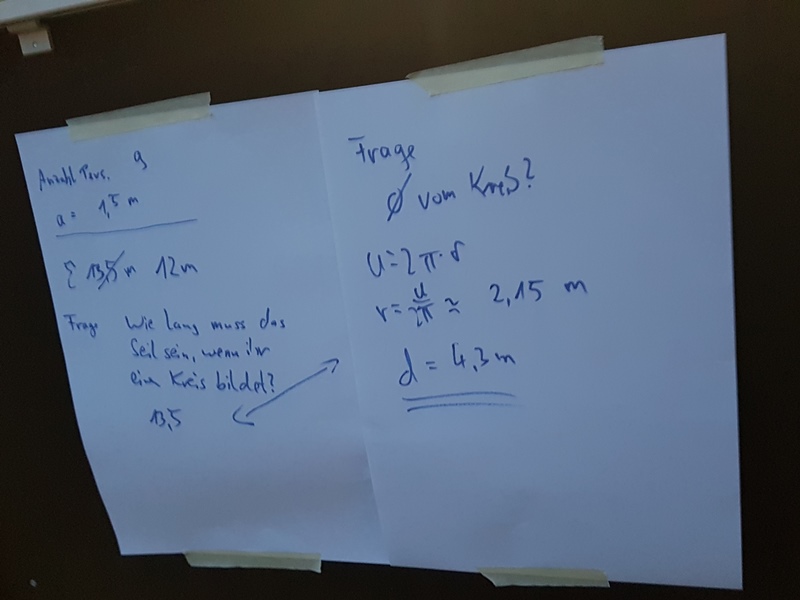 Anzahl Pers. 9
a = 1,5 m
Σ 13,5 m 12m
Frage Wie lang muss das
Seil sein, wenn ihr
ein Kreis bildet?
13,5
Frage
Ø vom Kreis?
U=2π·r
r=u/2π ≈ 2,15 m
d = 4,3m